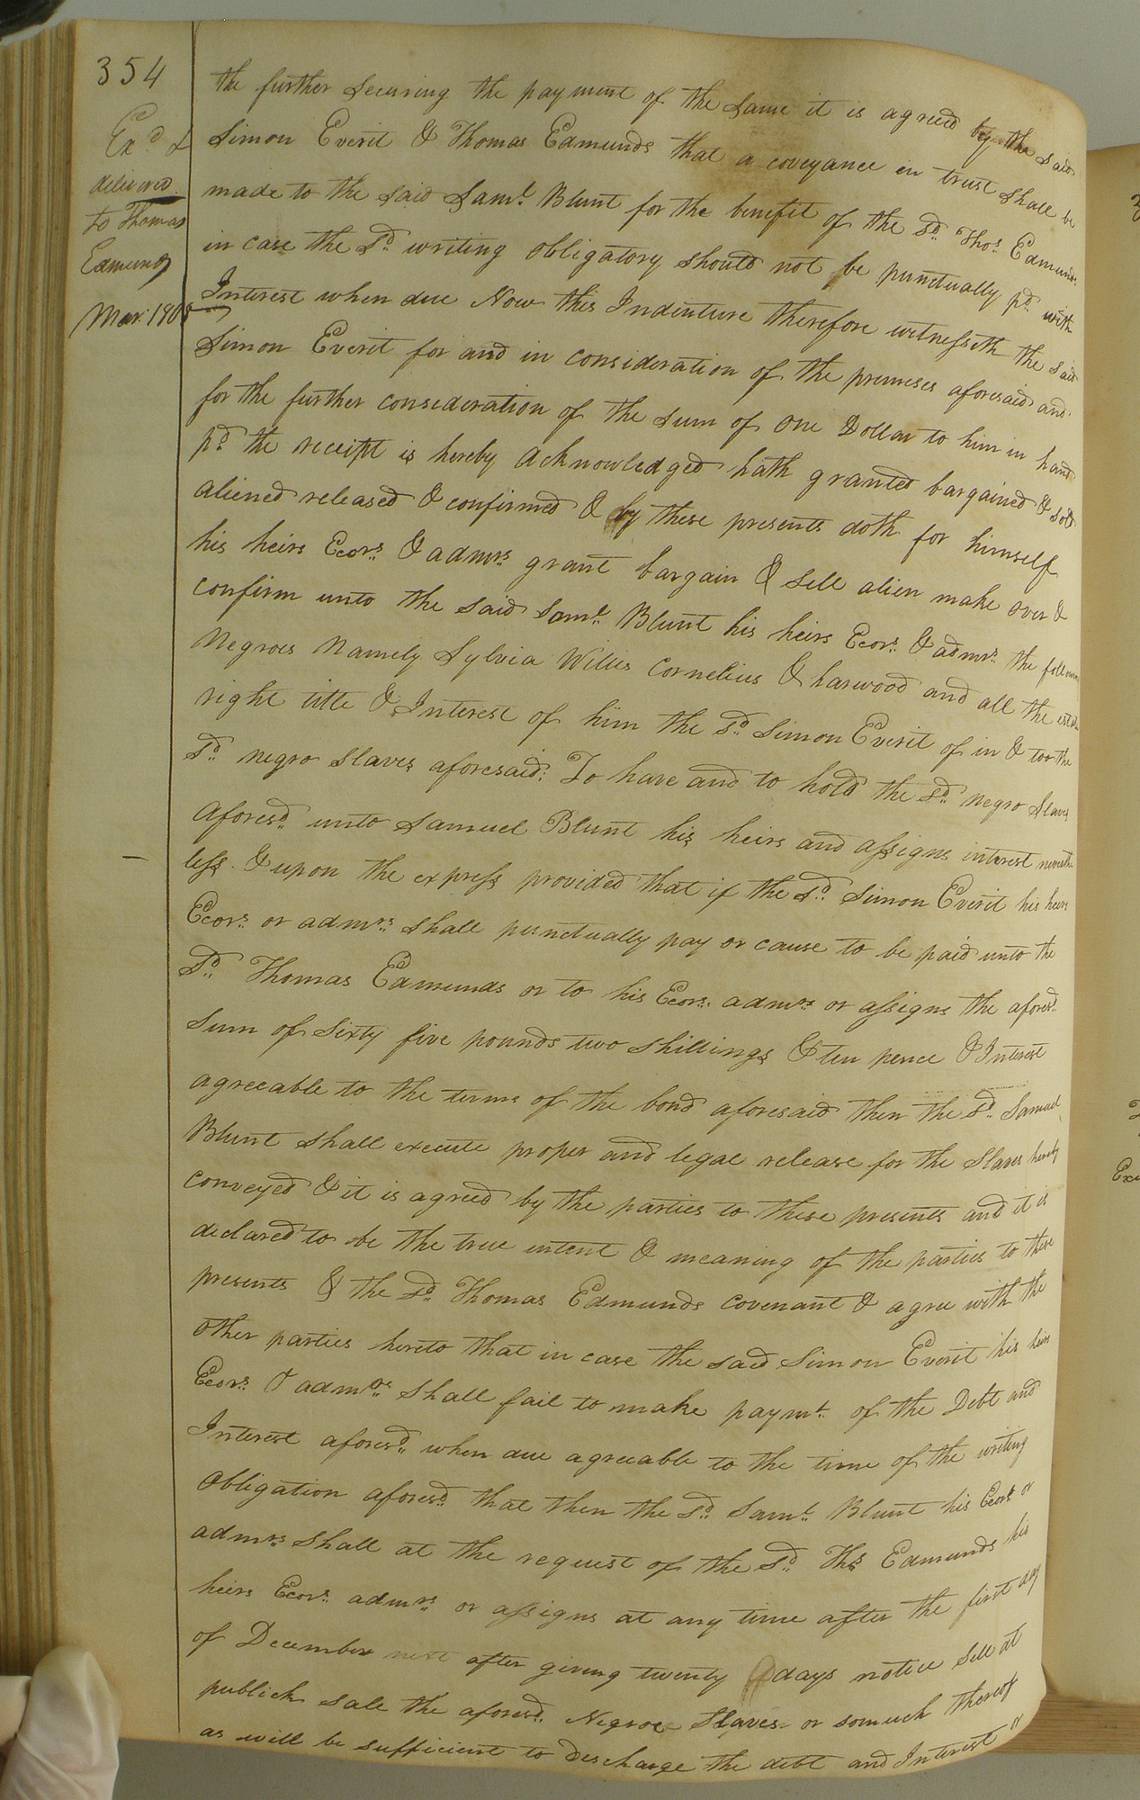 354
Ex.d &
delivered
to Thomas
Edmunds
Mar: 180
the further securing the payment of the same it is agreed by the said
Simon Everit & Thomas Edmunds that a coveyance in trust shall be
made to the said Saml. Blunt for the benefit of the sd. Thos. Edmunds
in case the sd. writing obligatory should not be punctually pd. with
Interest when due Now this Indenture therefore witnesseth the said
Simon Everit for and in consideration of the premises aforesaid and
for the further consideration of the sum of one Dollar to him in hand
pd. the receipt is hereby acknowledged hath granted bargained & sold
aliened released & confirmed & by these presents doth for himself
his heirs Ecors. & admrs. grant bargain & sell alien make over &
confirm unto the said Saml. Blunt his heirs Ecors. & admrs. the following
Negroes Namely Sylvia Willis Cornelius & harwood and all the estate
right title & Interest of him the sd. Simon Everit of in & too the
sd. negro slaves aforesaid: To have and to hold the sd. negro slaves
aforesd. unto Samuel Blunt his heirs and assigns interest neverthe
less. & upon the express provided that if the sd. Simon Everit his heirs
Ecors. or admrs. shall punctually pay or cause to be paid unto the
sd. Thomas Edmunds or to his Ecors. admrs. or assigns the aforesd.
sum of sixty five pounds two shillings & ten pence & Interest
agreeable to the terms of the bond aforesaid then the sd. Samuel
Blunt shall execute proper and legal release for the slaves hereby
conveyed & it is agreed by the parties to these presents and it is
declared to be the true intent & meaning of the parties to these
presents & the sd. Thomas Edmunds covenant & agree with the
other parties hereto that in case the said Simon Everit his heirs
Ecors. & admrs. shall fail to make paymt. of the Debt and
Interest aforesd. when due agreeable to the time of the writing
obligation aforesd. that then the sd. Saml. Blunt his Ecors or
admrs. shall at the request of the sd. Ths. Edmunds his
heirs Ecors. admrs. or assigns at any time after the first day
of December next after giving twenty days notice sell at
publick sale the aforesd. Negroe slaves or somuch thereof
as will be sufficient to Discharge the debt and Interest or